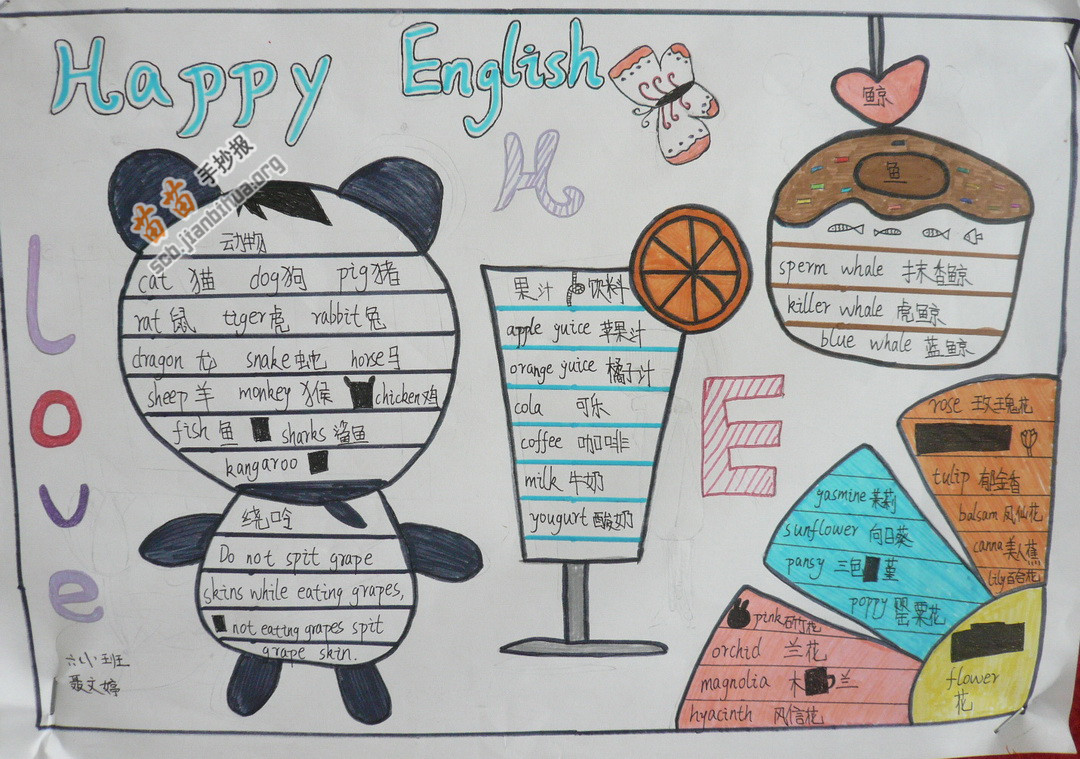 Happy English
苗苗手抄报
scb.jianbihua.org
Love
H
E
动物
cat 猫 dog狗 pig猪
rat 鼠 tiger虎 rabbit兔
dragon 龙 snake 蛇 horse马
sheep 羊 monkey 猴 chicken鸡
fish 鱼 sharks 鲨鱼
kangaroo
绕呤
Do not spit grape
skins while eating grapes,
not eating grapes spit
grape skin.
六小班
聂文婷
果汁 饮料
apple yuice 苹果汁
orange yuice 橘子汁
cola 可乐
coffee 咖啡
milk 牛奶
yougurt 酸奶
鲸
鱼
sperm whale 抹香鲸
killer whale 虎鲸
blue whale 蓝鲸
rose 玫瑰花
tulip 郁金香
balsam 凤仙花
canna 美人蕉
lily百合花
yasmine 茉莉
sunflower 向日葵
pansy 三色 堇
poppy 罂粟花
pink石竹花
orchid 兰花
magnolia 木 兰
hyacinth 风信花
flower
花